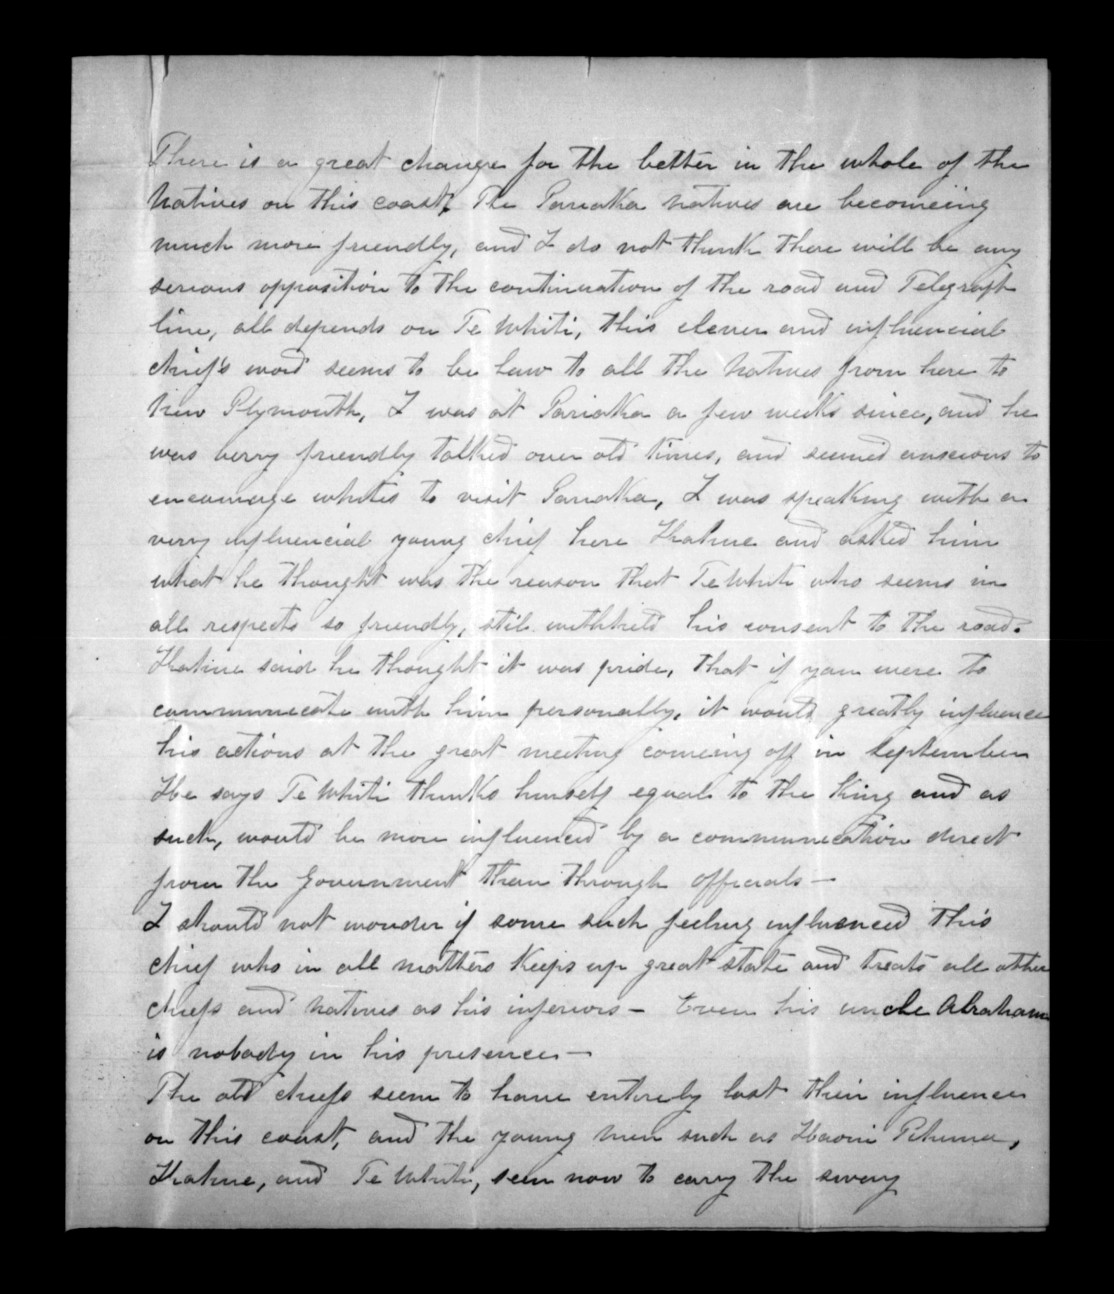 There is a great change for the better in the whole of the
Natives on this coast, The Pariaka natives are becomeing
much more friendly, and I do not think there will be any
serious opposition to the continuation of the road and Telegraph
line, all depends on Te Whiti, this clever and influencial
chief's word seems to be law to all the Natives from here to
New Plymouth, I was at Pariaka a few weeks since, and he
was very friendly talked over old times, and seemed anxious to
encourage whites to visit Pariaka, I was speaking with a
very influencial young chief here Hakue and asked him
what he thought was the reason that Te Whiti who seems in
all respects so friendly, still withheld his consent to the road.
Hakue said he thought it was pride, that if you were to
communicate with him personally, it would greatly influence
his actions at the great meeting comeing off in September
He says Te Whiti thinks himself equal to the King and as
such, would be more influenced by a communication direct
from the Government than through officials —
I should not wonder if some such feeling influenced this
chief who in all matters keeps up great state and treats all other
chiefs and natives as his inferiors — Even his uncle Abraham
is nobody in his presence —
The old chiefs seem to have entirely lost their influence
on this coast, and the young men such as Haori
Hakue, and Te Whiti, seem now to carry the sway